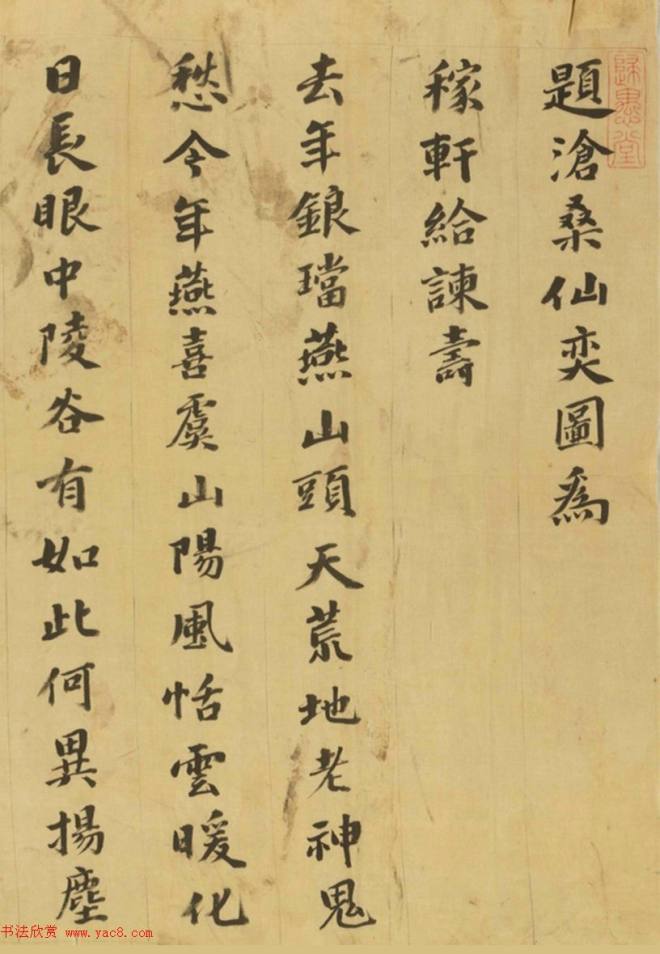 題滄桑仙奕圖為
稼軒給諫壽
去年鋃璫燕山頭天荒地老神鬼
愁今年燕喜虞山陽風恬雲暖化
日長眼中陵谷有如此何異揚塵
歸墨堂
书法欣赏 www.yac8.com